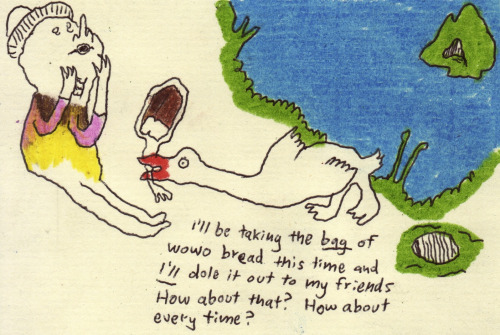 I'll be taking the bag of
wowo bread this time and
I'll dole it out to my friends
How about that? How about
every time?